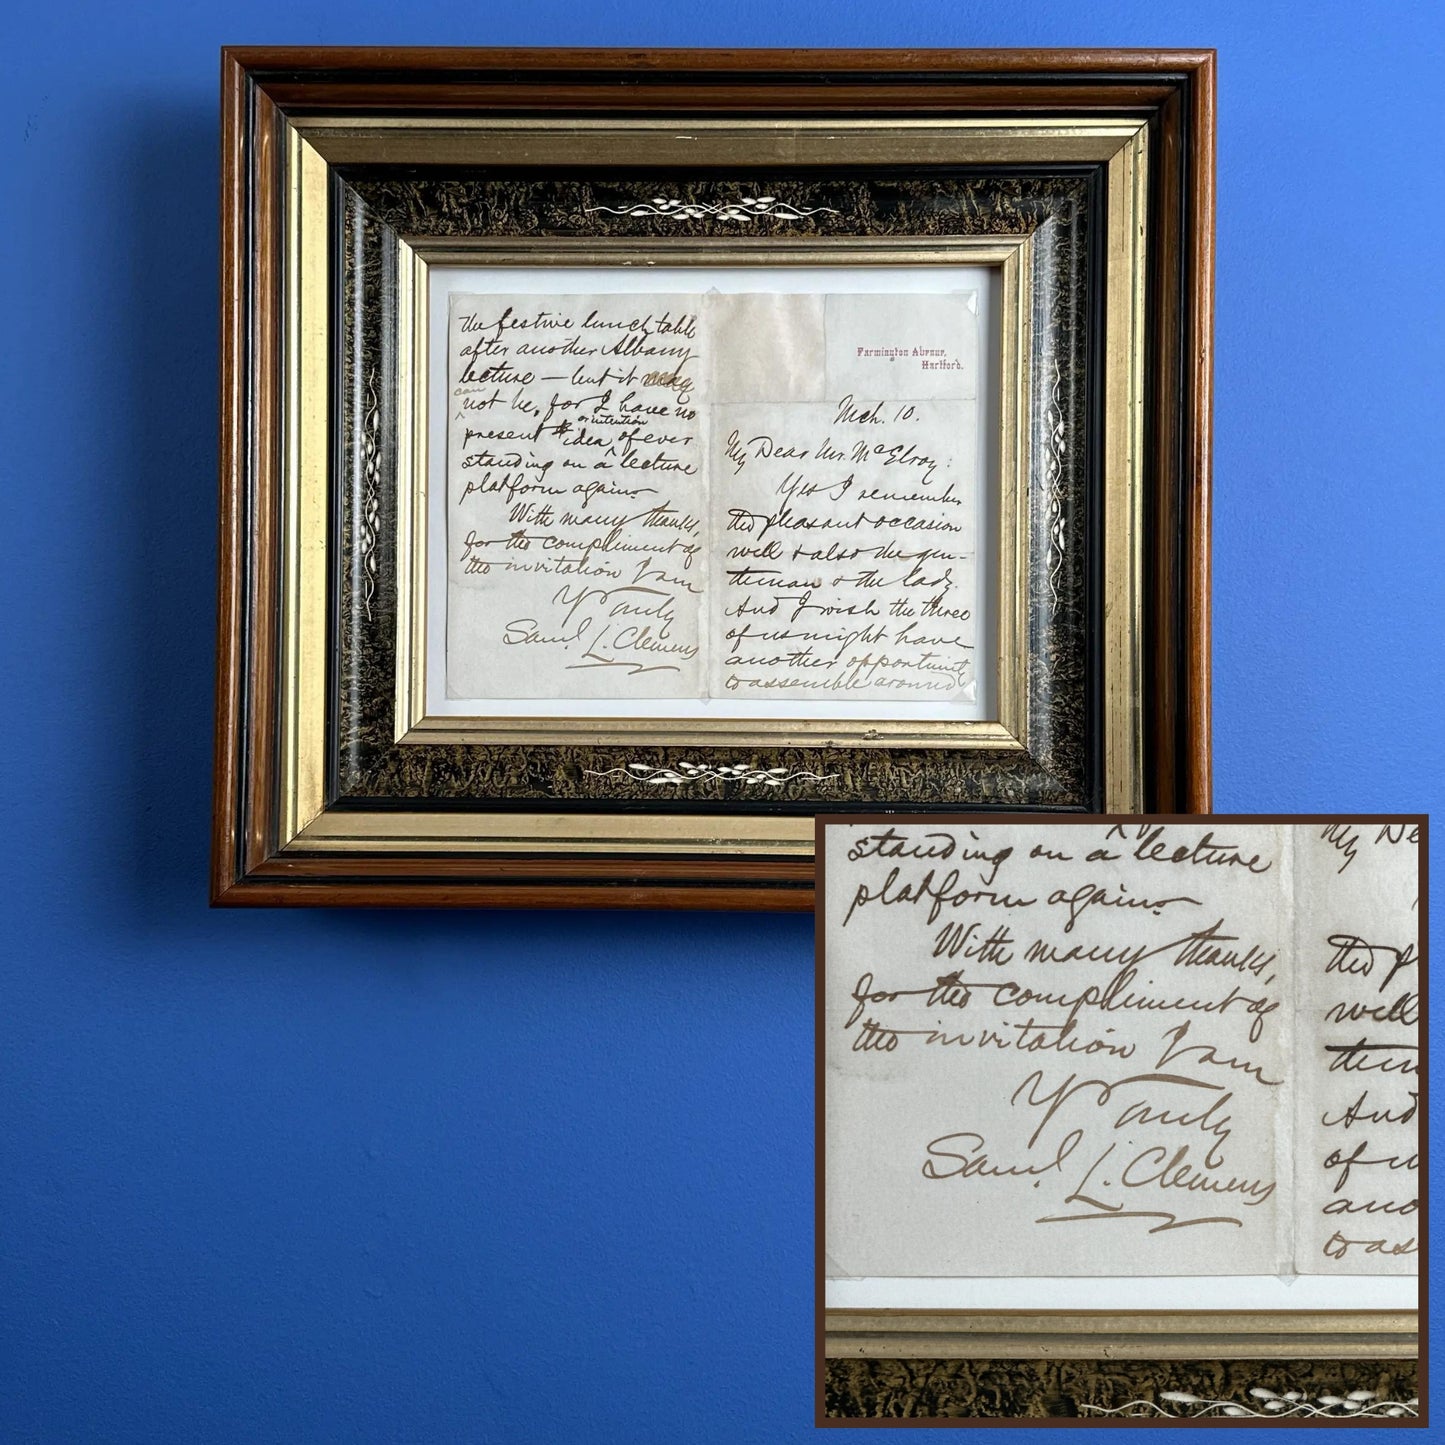 Farmington Avenue,
Hartford.
Mch. 10.
My Dear Mr. McElroy:
Yes I remember
the pleasant occasion
well & also the gen-
tleman & the lady.
And I wish the three
of us might have
another opportunity
to assemble around
the festive lunch table
after another Albany
lecture — but it
can
not be, for I have no
or intention
present idea of ever
standing on a lecture
platform again.
With many thanks,
for the compliment of
the invitation I am
Yrs Truly
Saml. L. Clemens
standing on a lecture
platform again.
With many thanks,
for the compliment of
the invitation I am
Yrs Truly
Saml. L. Clemens
My De
the pl
well
tlem
And
of u
ano
to as